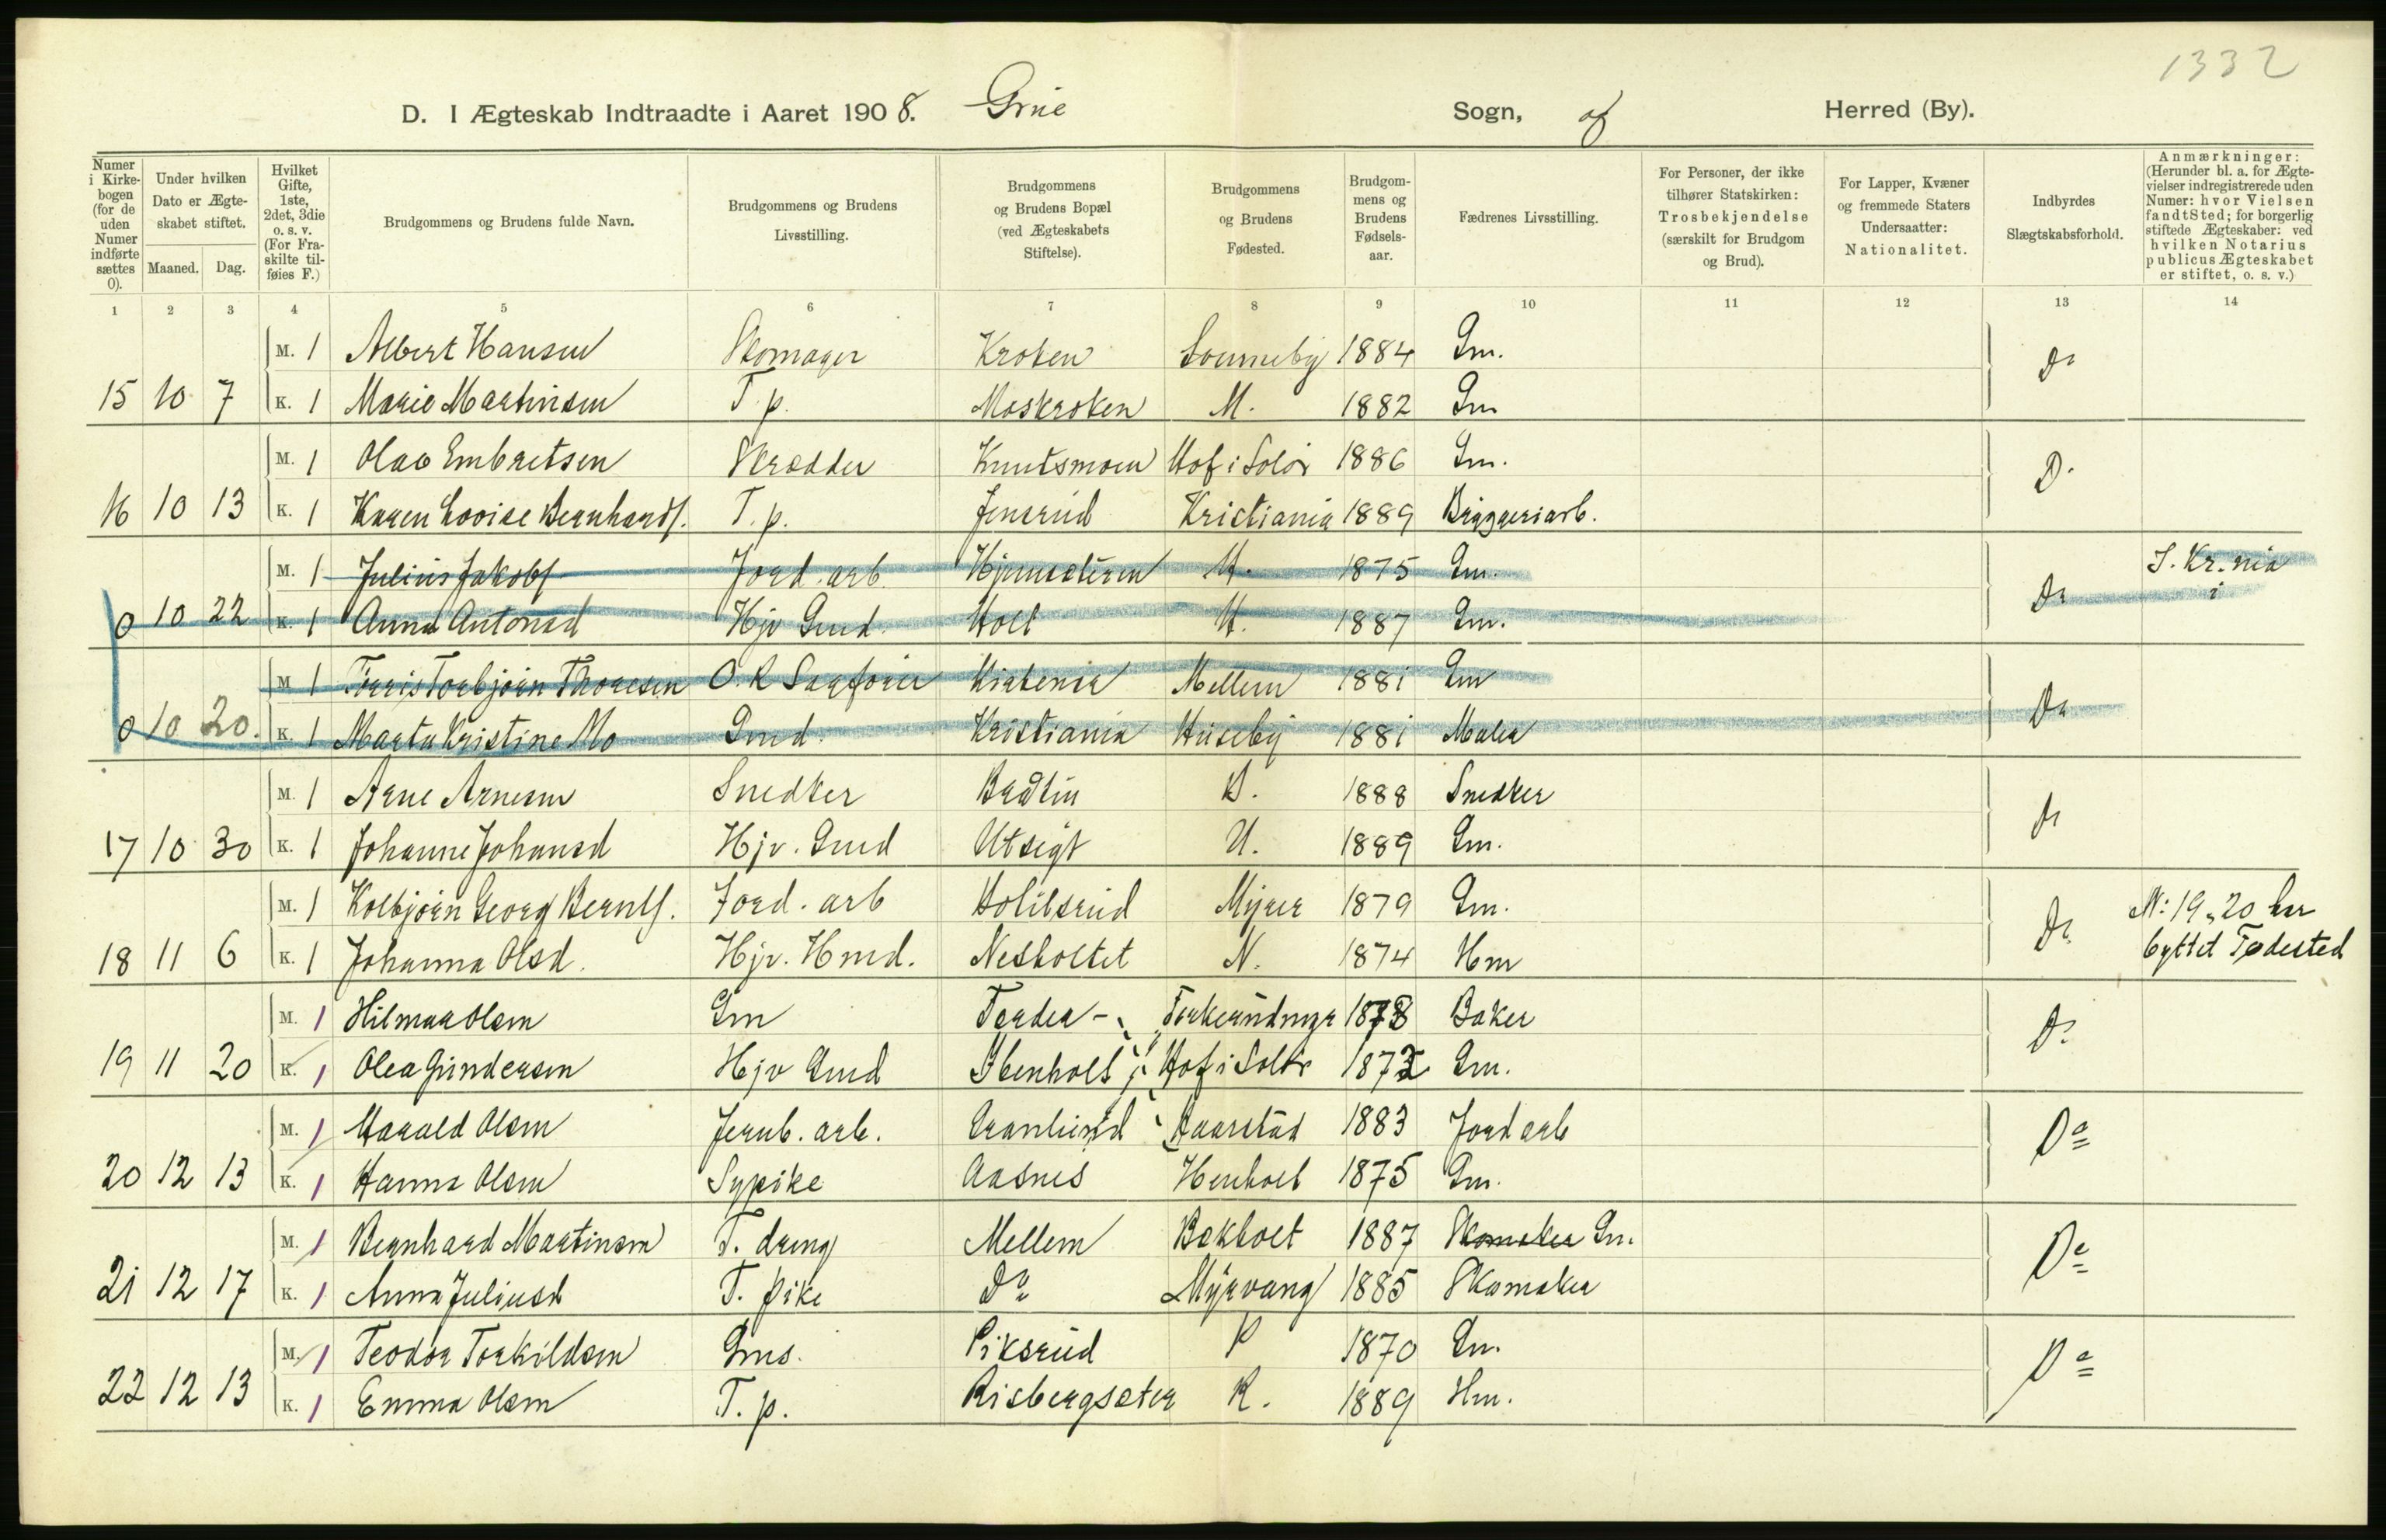 1332
D. I Ægteskab Indtraadte i Aaret 1908. Grue Sogn, af Herred (By).
Numer i Kirkebogen (for de uden Numer indførte sættes 0).
Under hvilken Dato er Ægteskabet stiftet.
Maaned. Dag.
Hvilket Gifte, 1ste, 2det, 3die o. s. v. (For Fraskilte tilføies F.)
Brudgommens og Brudens fulde Navn.
Brudgommens og Brudens Livsstilling.
Brudgommens og Brudens Bopæl (ved Ægteskabets Stiftelse).
Brudgommens og Brudens Fødested.
Brudgommens og Brudens Fødselsaar.
Fædrenes Livsstilling.
For Personer, der ikke tilhører Statskirken: Trosbekjendelse (særskilt for Brudgom og Brud).
For Lapper, Kvæner og fremmede Staters Undersaatter: Nationalitet.
Indbyrdes Slægtskabsforhold.
Anmærkninger: (Herunder bl. a. for Ægtevielser indregistrerede uden Numer: hvor Vielsen fandt Sted; for borgerlig stiftede Ægteskaber: ved hvilken Notarius publicus Ægteskabet er stiftet, o. s. v.)
1 2 3 4 5 6 7 8 9 10 11 12 13 14
M. 1 Albert Hansen Skomager Kroken Sonneby 1884 Gm.
15 10 7 K. 1 Marie Martinsen T. p. Moskroken M. 1882 Gm
M. 1 Olav Embretsen Skrædder Knutsmoen Hof i Solør 1886 Gm.
16 10 13 K. 1 Karen Lovise Bernhards. T. p. Jensrud Kristiania 1889 Bryggeriarb.
M. 1 Julius Jakobs. Jord. arb. H. 1875 Gm. I. Kr.nia
0 10 22 K. 1 Anna Antonsd Hjv Gmd. Holt H. 1887 Gm.
M 1 Torris Torbjørn Thoresen Mellem 1881 Gm
0 10 20. K. 1 Marta Kristine Mo Gmd. Kristiania Huseby 1881 Maler
M. 1 Arne Arnesen Snedker Bråtin B. 1888 Snedker
17 10 30 K. 1 Johanne Johansd Hjv. Gmd Utsigt U. 1889 Gm.
M. 1 Kolbjørn Georg Bernts. Jord. arb Myrer 1879 Gm. N: 19 20 har
18 11 6 K. 1 Johanna Olsd. Hjv. Hmd. Nesholtet N. 1874 Hm byttet Fødested
M. 1 Hilmar Olsen Gm 1878 Baker
19 11 20 K. 1 Olea Gundersen Hjv Gmd Hof i Solør 1872 Gm.
M. 1 Harald Olsen Jernb. arb. 1883 Jord arb
20 12 13 K. 1 Hanna Olsen Sypike Aasnes 1875 Gm. Do
M. 1 Bernhard Martinsen T. dreng Mellem Bakholt 1887 Skomaker Gm.
21 12 17 K. 1 Anna Juliusd T. pike Do Myrvang 1885 Skomaker Do
M. 1 Teodor Torkildsen Gms. Piksrud P 1870 Gm.
22 12 13 K. 1 Emma Olsen T. p. Risbergsæter R. 1889 Hm. Do